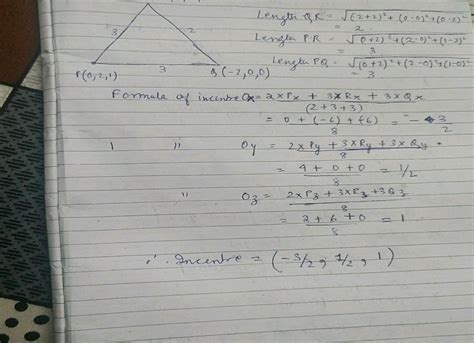 3
2
P(0,2,1)
3
Q(-2,0,0)
Length QR = √(-2+2)² + (0-0)² + (0-2)²
= 2
Length P.R = √(0+2)² + (2-0)² + (1-2)²
= 3
Length PQ = √(0+2)² + (2-0)² + (1-0)²
= 3
Formula of incentre Ox = 2×Px + 3×Rx + 3×Qx
(2+3+3)
= 0 + (-6) + (-6) = -3
8 2
1 " Oy = 2×Py + 3×Ry + 3×Qy
8
= 4 + 0 + 0 = 1/2
8
" Oz = 2×Pz + 3×Rz + 3Qz
8
= 2 + 6 + 0 = 1
8
∴ Incentre = (-3/2, 1/2, 1)